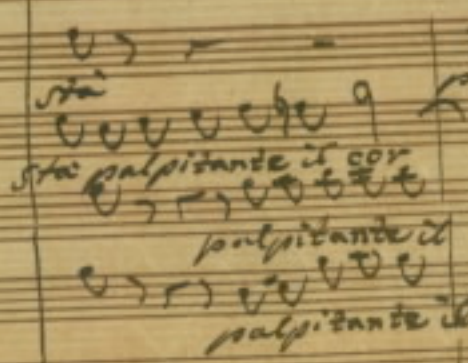 stà
stà palpitante il cor
palpitante il
palpitante il